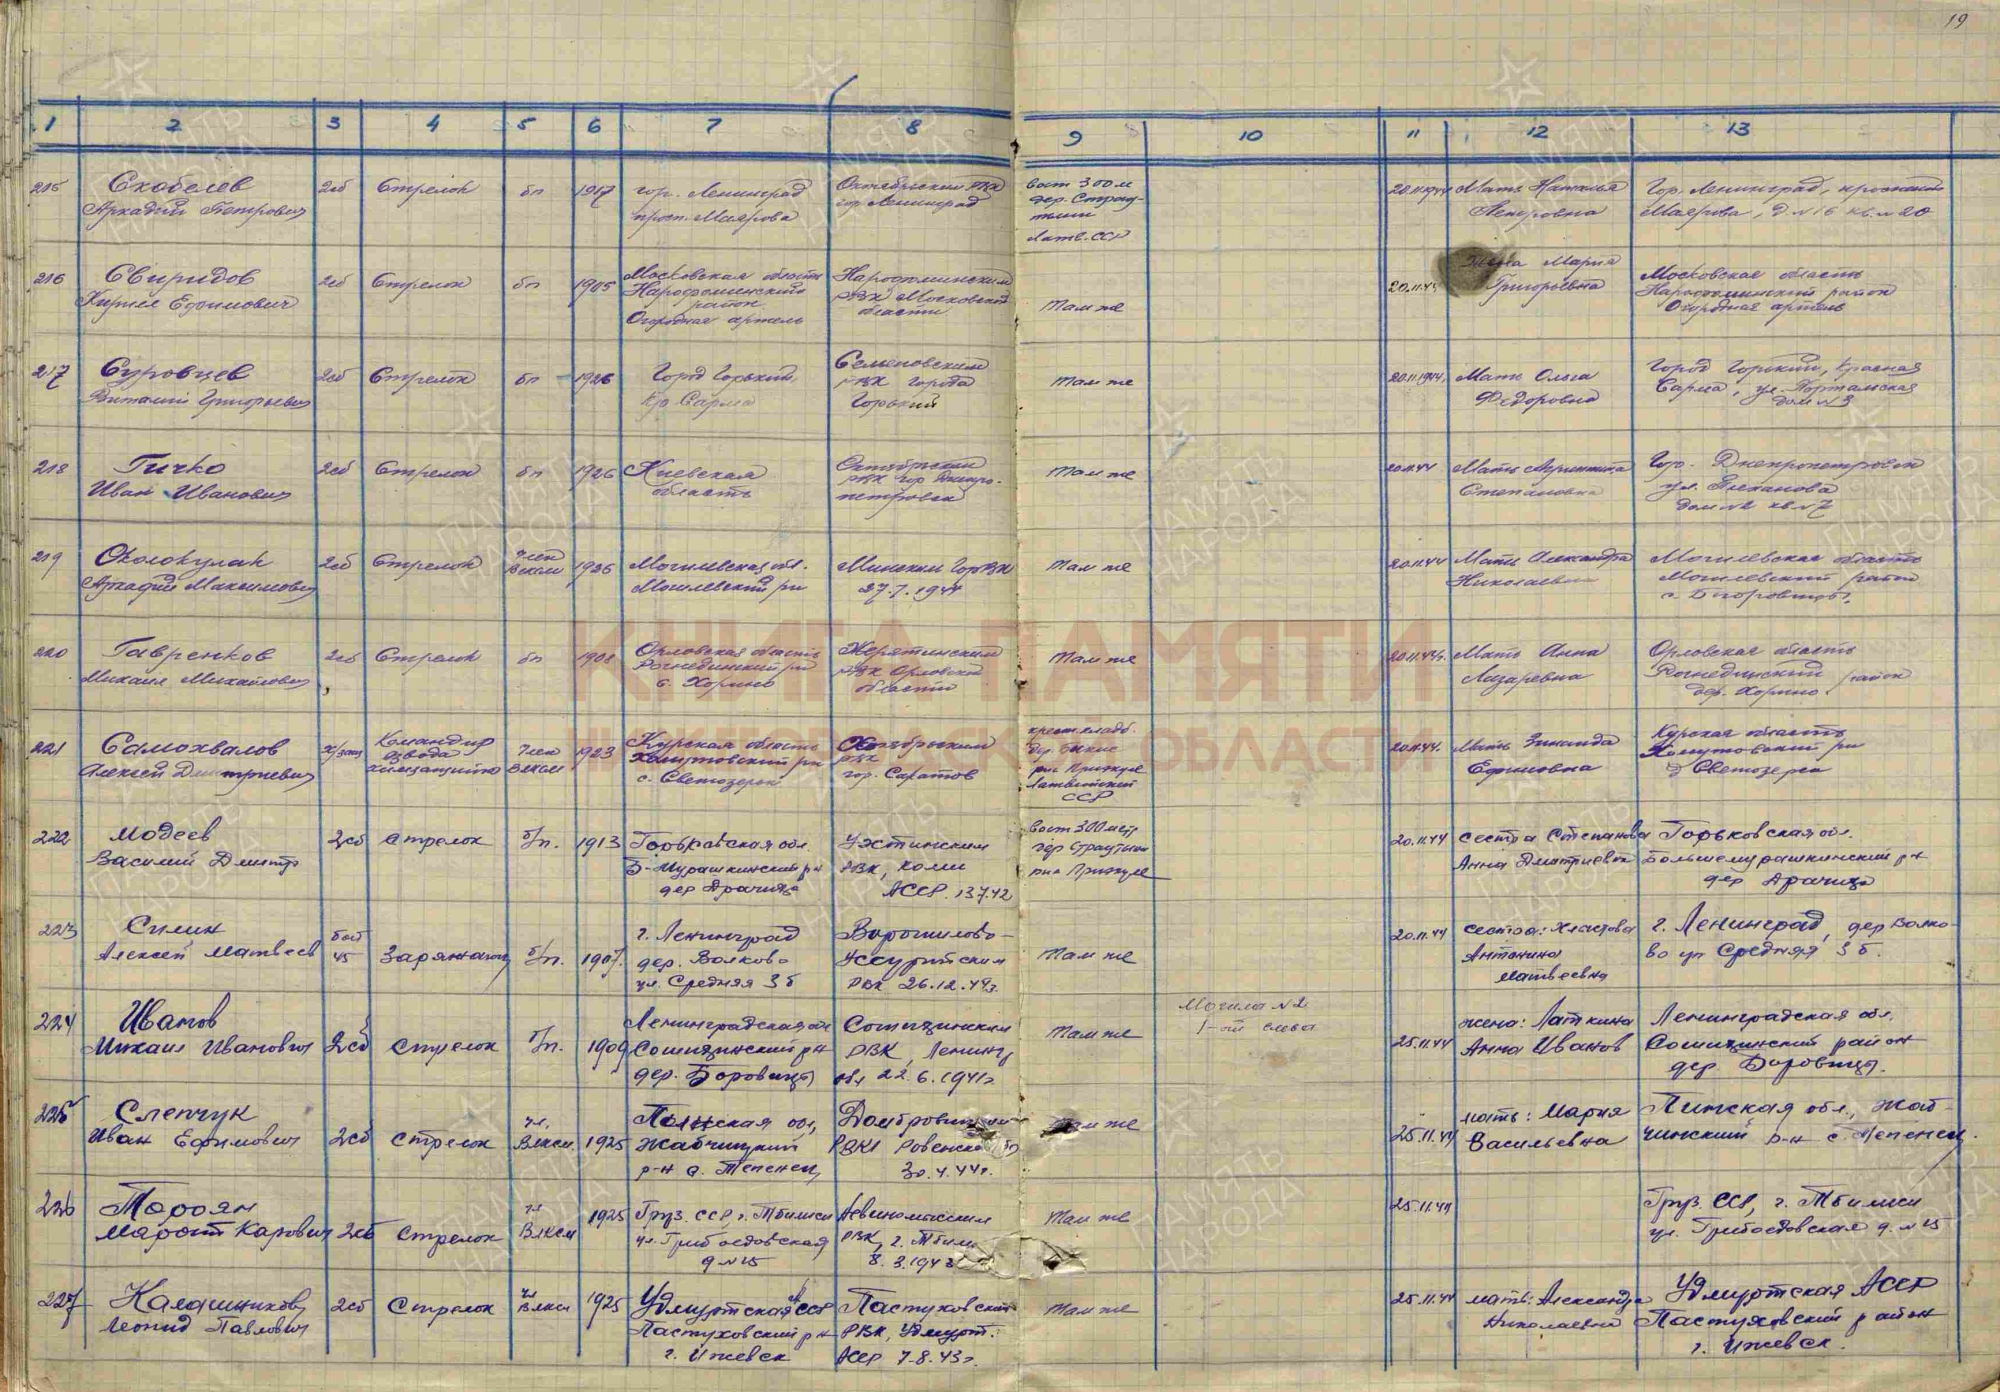 19
1 2 3 4 5 6 7 8 9 10 11 12 13
215 Скобелев Аркадий Петрович
2сб Стрелок бп 1917
гор. Ленинград
просп. Маярова
Октябрьским РВК
гор. Ленинград
Вост 300 м
дер.
Латв. ССР
20.11.1944
Мать Наталья
Петровна
Гор. Ленинград, проспект
Маярова, д. №16 кв. № 20
216 Свиридов
Ефимович
2сб Стрелок бп 1905
Московская область
Нарофоминский
район
Огородная артель
Нарофоминским
РВК Московской
области
Там же
Жена Мария
Григорьевна
Московская область
Нарофоминский район
Огородная артель
217 Суровцев
Виталий Григорьевич
2сб Стрелок бп 1926
Город Горький
Кр. Сарма
Семеновским
РВК города
Горький
Там же
20.11.1944.
Мать Ольга
Федоровна
Город Горький, Красная
Сарма, ул.
дом № 3
218 Гичко
Иван Иванович
2сб Стрелок бп 1926
Киевская
область
Октябрьским
РВК гор Днепро-
петровск
Там же
20.11.44
Мать
Степановна
Гор. Днепропетровск
ул. Плеханова
дом №2 кв №7
219 Околокулак
Аркадий Максимович
2сб Стрелок Член ВЛКСМ 1926
Могилевская обл.
Могилевский рн
Минским ГорВК
27.7.1944
Там же
20.11.44
Мать Александра
Николаевна
Могилевская область
Могилевский район
220 Гавренков
Михаил Михайлович
2сб Стрелок бп 1908
Орловская область
Рогнединский рн
с. Хорино
РВК Орловской
области
Там же
20.11.44г.
Мать Анна
Лазаревна
Орловская область
Рогнединский район
дер. Хорино
221 Самохвалов
Алексей Дмитриевич
Командир
взвода
химзащиты
Член ВЛКСМ 1923
Курская область
Хомутовский рн
с. Светозерск
Октябрьским
РВК
гор. Саратов
рн Приекуле
Латвийской
ССР
20.11.44.
Мать Зинаида
Ефимовна
Курская область
Хомутовский рн
222 Модеев
Василий Дмитр
2сб Стрелок б/п. 1913
Горьковская обл.
Б-Мурашкинский рн
дер Драчиха
Ухтинским
РВК, Коми
АССР. 13.7.42
Вост 300 мет
дер Страутыни
рн Приекуле
20.11.44
сестра Степанова
Анна Дмитриевна
Горьковская обл.
Большемурашкинский рн
дер Драчиха
223 Силин
Алексей Матвеев
бат
45
Заряжающ б/п. 1907.
г. Ленинград
дер. Волково
ул. Средняя 3б
Ворошилово-
Уссурийским
РВК 26.12.
Там же
20.11.44
сестра:
Антонина
Матвеевна
г. Ленинград, дер Волко-
во ул Средняя 3 б.
224 Иванов
Михаил Иванович
2сб Стрелок б/п. 1909
Ленинградская обл
дер. Боровица
РВК, Ленинг
обл 22.6.1941г.
Там же
Могила №2
1-ый слева
25.11.44
жена: Латкина
Анна Иванов
Ленинградская обл.
район
дер. Боровица.
225 Слепчук
Иван Ефимович
2сб Стрелок чл. ВЛКСМ 1925
обл,
Жабчицкий
р-н с. Тепенец
РВК Ровенской
30.4.44г.
Там же
25.11.44
мать: Мария
Васильевна
Пинская обл., Жаб-
чинский р-н с. Тепенец.
226 Тороян
Карович
2сб Стрелок чл ВЛКСМ 1925
Груз. ССР, г. Тбилиси
ул. Грибоедовская
д № 15
РВК, г. Тбили
8.3.1943
Там же
25.11.44
Груз. ССР, г. Тбилиси
ул. Грибоедовская д. №15
227 Калашников
Леонид Павлович
2сб Стрелок чл ВЛКСМ 1925
Удмуртская АССР
Пастуховский р-н
г. Ижевск
Пастуховский
РВК, Удмурт.
АССР 7-8.43г.
Там же
25.11.44
мать: Александра
Николаевна
Удмуртская АССР
Пастуховский район
г. Ижевск.
КНИГА ПАМЯТИ
ПАМЯТЬ НАРОДА